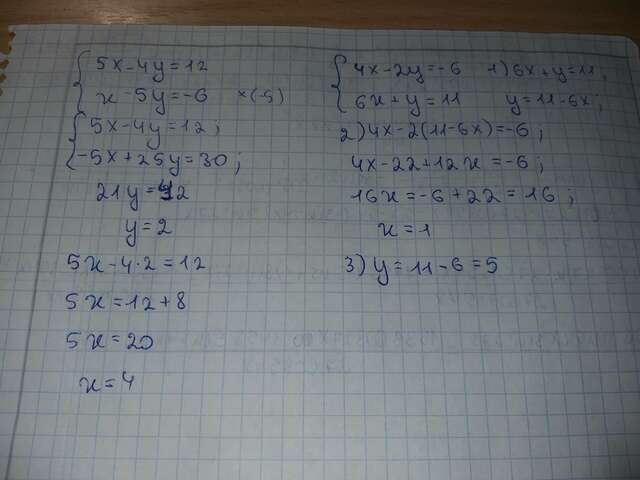 5x-4y=12
x-5y=-6 ×(-5)
5x-4y=12;
-5x+25y=30;
21y=42
y=2
5x-4·2=12
5x=12+8
5x=20
x=4
4x-2y=-6 1)6x+y=11;
6x+y=11 y=11-6x;
2)4x-2(11-6x)=-6;
4x-22+12x=-6;
16x=-6+22=16;
x=1
3)y=11-6=5